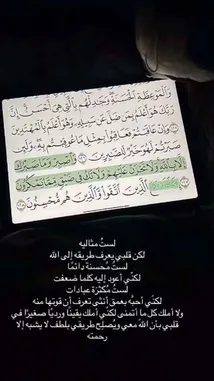 وَالْمَوْعِظَةِ الْحَسَنَةِ وَجَادِلْهُم بِالَّتِي هِيَ أَحْسَنُ إِنَّ
رَبَّكَ هُوَ أَعْلَمُ بِمَن ضَلَّ عَن سَبِيلِهِ وَهُوَ أَعْلَمُ بِالْمُهْتَدِينَ
وَإِنْ عَاقَبْتُمْ فَعَاقِبُوا بِمِثْلِ مَا عُوقِبْتُم بِهِ وَلَئِن
صَبَرْتُمْ لَهُوَ خَيْرٌ لِّلصَّابِرِينَ وَاصْبِرْ وَمَا صَبْرُكَ
إِلَّا بِاللَّهِ وَلَا تَحْزَنْ عَلَيْهِمْ وَلَا تَكُ فِي ضَيْقٍ مِّمَّا يَمْكُرُونَ
الَّذِينَ اتَّقَوا وَّالَّذِينَ هُم مُّحْسِنُونَ
لستُ مثاليه
لكن قلبي يعرف طريقه إلى الله
لستُ مُحسنة دائمًا
لكنّي أعود إليه كلما ضعفت
لستُ مُكثرَة عبادات
لكنّي أحبُّه بعمق أنثى تعرف أن قوتها منه
ولا أملك كل ما أتمنى لكنّي أملك يقينًا ورديًا صغيرًا في
قلبي بأن الله معي ويُصلِح طريقي بلطف لا يشبه إلا
رحمته